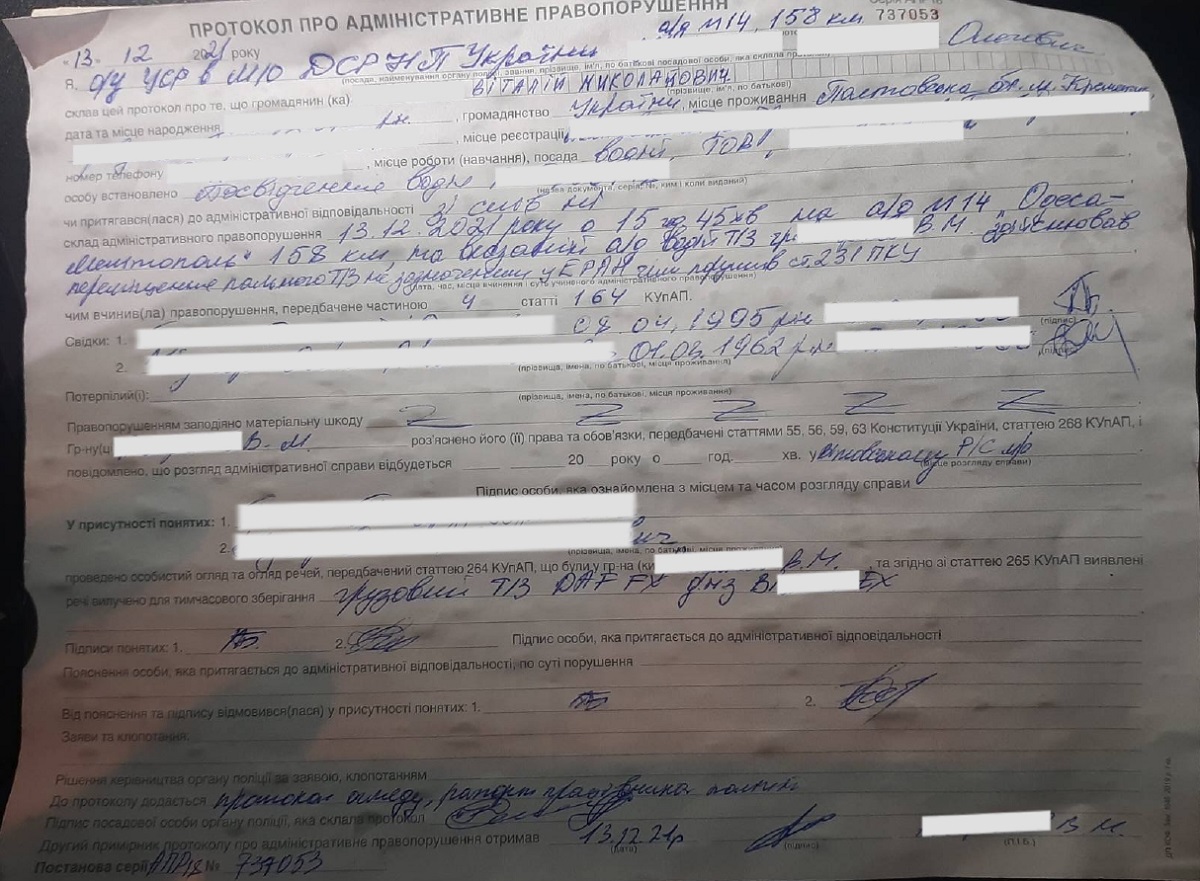 ПРОТОКОЛ ПРО АДМІНІСТРАТИВНЕ ПРАВОПОРУШЕННЯ
737053
13. 12 2021 року а/д М14, 158 км
Я, о/у УСР в М/О ДСР НП України
(посада, найменування органу поліції, звання, прізвище, ім'я, по батькові посадової особи, яка склала протокол)
склав цей протокол про те, що громадянин (ка) ВІТАЛІЙ МИКОЛАЙОВИЧ
(прізвище, ім'я, по батькові)
дата та місце народження р.н. , громадянство України , місце проживання Полтавська обл. м. Кременчук
, місце реєстрації
номер телефону , місце роботи (навчання), посада водій, ТОВ
особу встановлено Посвідчення водія,
(назва документа, серія, №, ким і коли виданий)
чи притягався(лася) до адміністративної відповідальності зі слів ні
склад адміністративного правопорушення 13.12.2021 року о 15 год 45 хв на а/д М14 „Одеса-
Мелітополь" 158 км, водій Т/З гр. В.М. здійснював
переміщення пального Т/З не зазначеним у ЕРАН чим порушив ст. 231 ПКУ
(дата, час, місце вчинення і суть учиненого адміністративного правопорушення)
чим вчинив(ла) правопорушення, передбачене частиною 4 статті 164 КУпАП.
Свідки: 1. 04, 1995 рн
(підпис)
2. 01.03.1962 р.н.
(підпис)
(прізвища, імена, по батькові, місця проживання)
Потерпілий(і):
(прізвища, імена, по батькові, місця проживання)
Правопорушенням заподіяно матеріальну шкоду Z Z Z Z Z
Гр-ну(ці В. М. роз'яснено його (її) права та обов'язки, передбачені статтями 55, 56, 59, 63 Конституції України, статтею 268 КУпАП, і
повідомлено, що розгляд адміністративної справи відбудеться 20 року о год. хв. у Р/С
(місце розгляду справи)
Підпис особи, яка ознайомлена з місцем та часом розгляду справи
У присутності понятих: 1.
2. вич
(прізвища, імена, по батькові, місця проживання)
проведено особистий огляд та огляд речей, передбачений статтею 264 КУпАП, що були у гр-на (ки В.М. , та згідно зі статтею 265 КУпАП виявлені
речі вилучено для тимчасового зберігання грузовий Т/З DAF FX днз В ЕХ
Підписи понятих: 1. 2. Підпис особи, яка притягається до адміністративної відповідальності
Пояснення особи, яка притягається до адміністративної відповідальності, по суті порушення
Від пояснення та підпису відмовився(лася) у присутності понятих: 1. 2.
Заяви та клопотання:
Рішення керівництва органу поліції за заявою, клопотанням
До протоколу додається протокол огляду, рапорт працівника поліції
Підпис посадової особи органу поліції, яка склала протокол
Другий примірник протоколу про адміністративне правопорушення отримав 13.12.21р В М.
(дата) (підпис) (П.І.Б.)
Постанова серії АПР18 № 737053